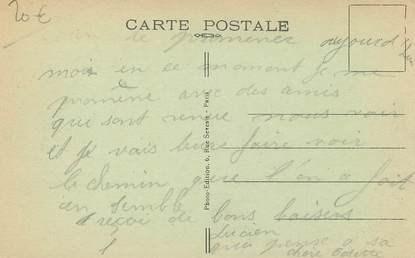 20 €
CARTE POSTALE
te promener aujourd
moi en ce moment je me
promène avec des amis
qui sont venue nous voir
et je vais leur faire voir
le chemin que l'on a fait
en semble
reçoi de bons baisers
Lucien
qui pense a sa
chère Odette
Photo-Edition, 6, Rue Severo - Paris